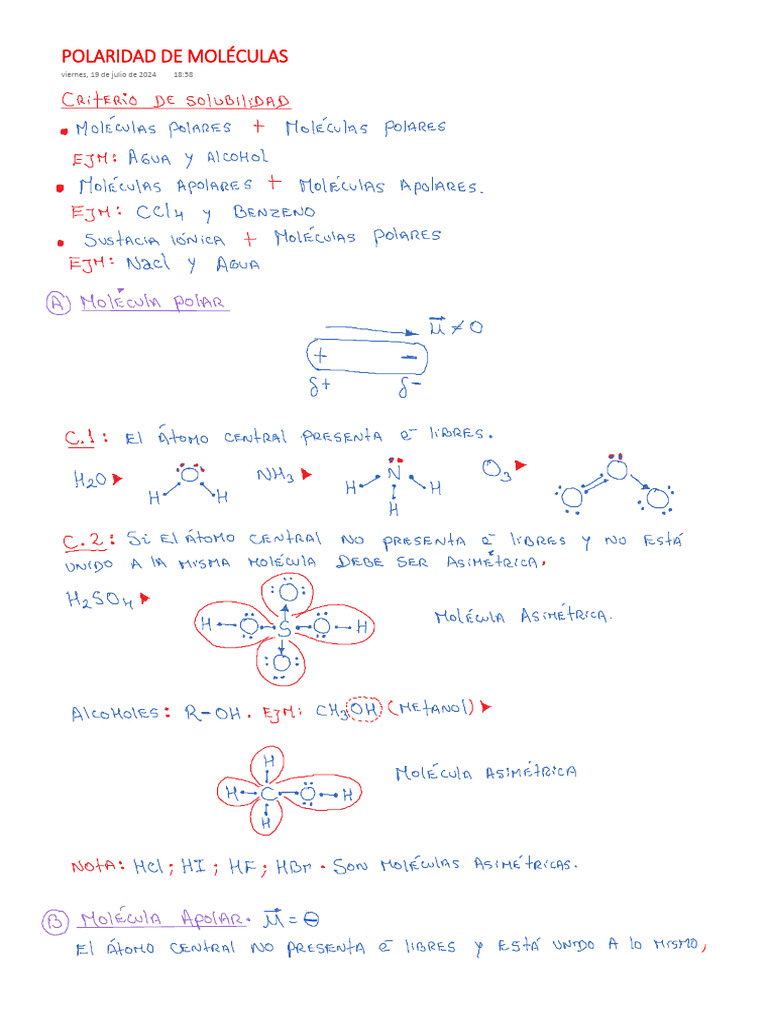 POLARIDAD DE MOLÉCULAS
viernes, 19 de julio de 2024 18:58
CRITERIO DE SOLUBILIDAD
• MOLÉCULAS POLARES + MOLÉCULAS POLARES
EJM: AGUA Y ALCOHOL
• MOLÉCULAS APOLARES + MOLÉCULAS APOLARES.
EJM: CCl4 Y BENZENO
• SUSTACIA IÓNICA + MOLÉCULAS POLARES
EJM: Nacl Y AGUA
A) MOLÉCULA POLAR
μ⃗ ≠ 0
+ −
δ+ δ−
C.1: EL ÁTOMO CENTRAL PRESENTA e̅ LIBRES.
H2O O H H NH3 N H H H O3 O O O
C.2: SI EL ÁTOMO CENTRAL NO PRESENTA e̅ LIBRES Y NO ESTÁ
UNIDO A LA MISMA MOLÉCULA DEBE SER ASIMÉTRICA.
H2SO4
O
H O S O H
O
MOLÉCULA ASIMÉTRICA.
ALCOHOLES: R-OH. EJM: CH3OH (METANOL)
H
H C O H
H
MOLÉCULA ASIMÉTRICA
NOTA: HCl; HI; HF; HBr. SON MOLÉCULAS ASIMÉTRICAS.
B) MOLÉCULA APOLAR. μ⃗ = θ
EL ÁTOMO CENTRAL NO PRESENTA e̅ LIBRES Y ESTÁ UNIDO A LO MISMO,